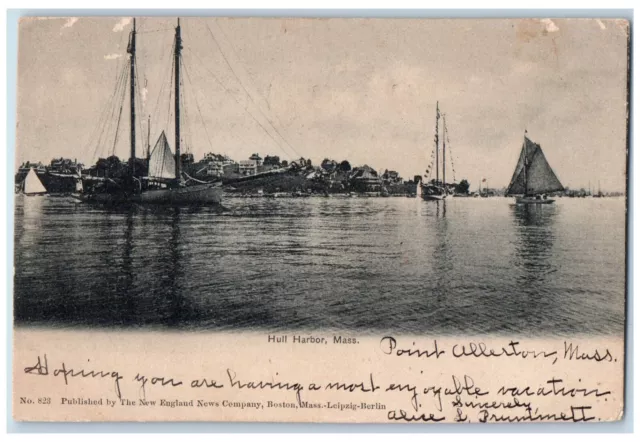 Hull Harbor, Mass.
Point Allerton, Mass.
Hoping you are having a most enjoyable vacation
Sincerely
No. 823 Published by The New England News Company, Boston, Mass.-Leipzig-Berlin
Alice L.